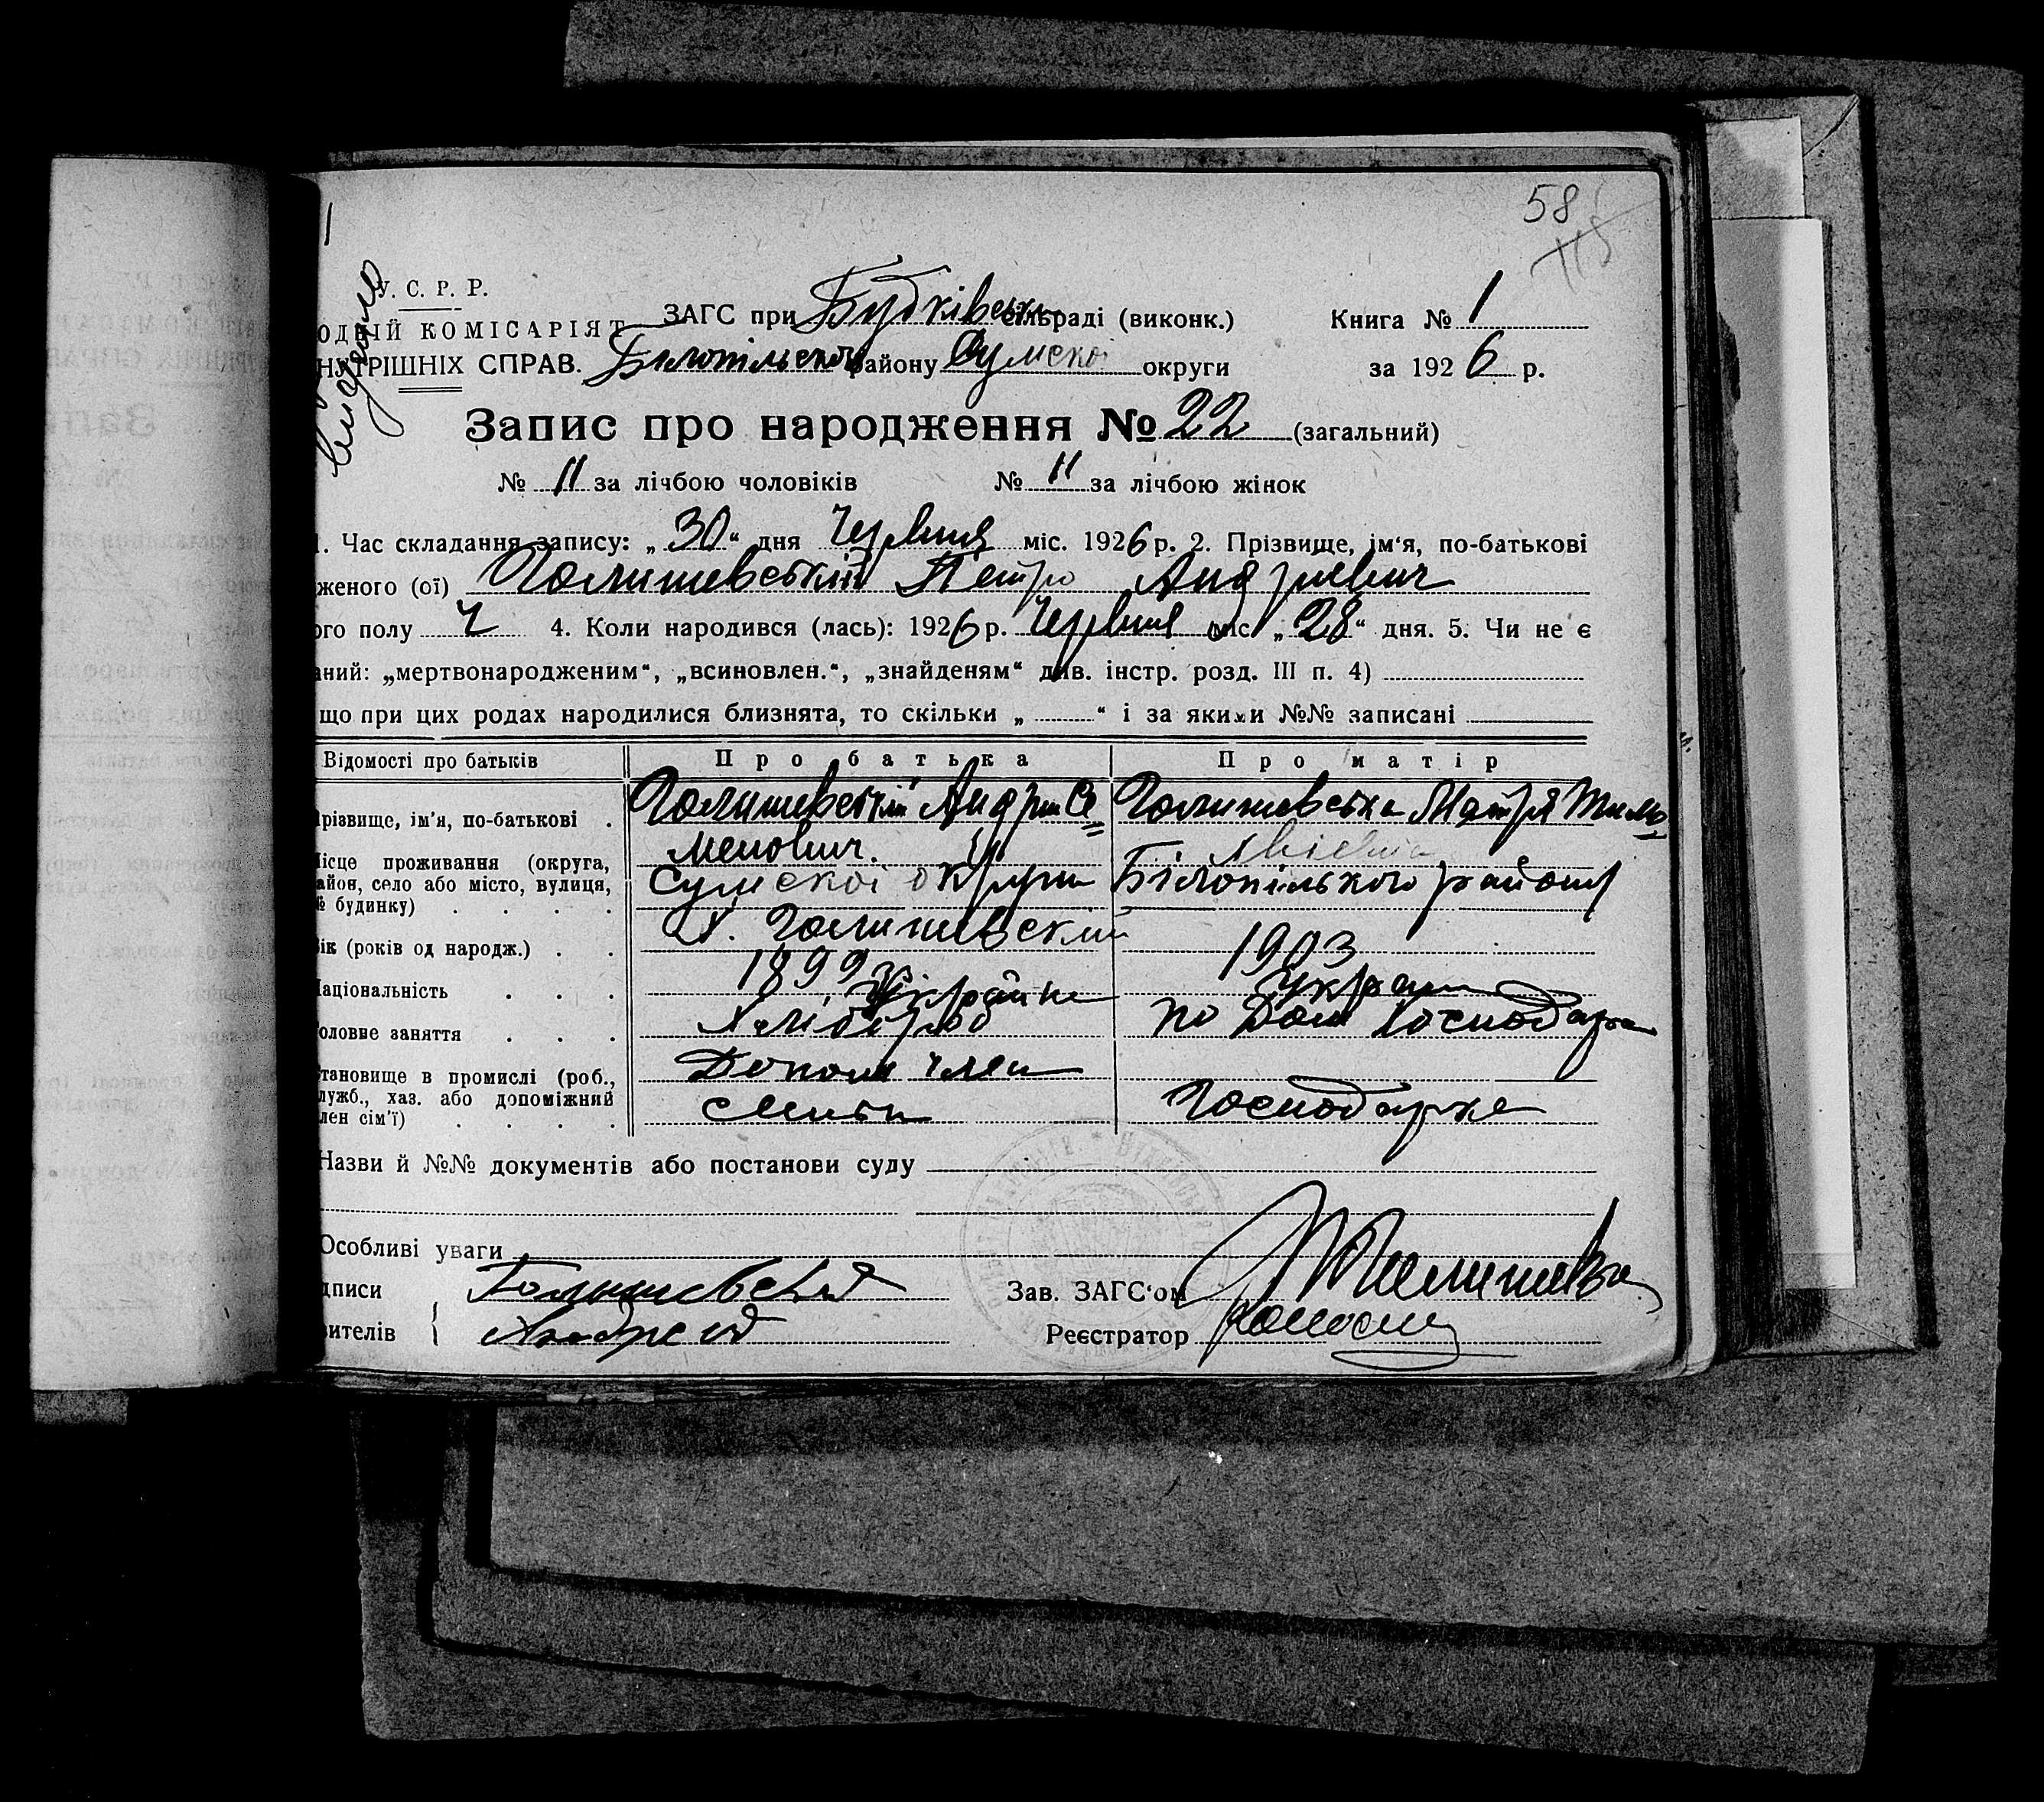 58
115
1
видано
У. С. Р. Р.
ОДНІЙ КОМІСАРІЯТ
НУТРІШНІХ СПРАВ.
ЗАГС при Будківськ сільраді (виконк.) Книга № 1
Білопільском району Сумскої округи за 1926 р.
Запис про народження № 22 (загальний)
№ 11 за лічбою чоловіків № 11 за лічбою жінок
1. Час складання запису: „30“ дня Червня міс. 1926 р. 2. Прізвище, ім‘я, по-батькові
женого (ої) Голишевський Петро Андрієвич
ого полу Ч 4. Коли народився (лась): 1926 р. Червня міс. „28“ дня. 5. Чи не є
аний: „мертвонародженим“, „всиновлен.“, „знайденям“ див. інстр. розд. III п. 4)
що при цих родах народилися близнята, то скільки „ “ і за якими №№ записані
Відомості про батьків Про батька Про матір
Прізвище, ім'я, по-батькові . Голишевський Андрій Се= Голишевська Мотря Тимо=
менович.
Місце проживання (округа, район, село або місто, вулиця, № будинку) Сумскої округи Білопільского району
Х. Голишевский
Вік (років од народж.) 1899 1903
Національність Україне Украин
Головне заняття Хлібороб по Дом Господарка
становище в промислі (роб., Допом член
служб., хаз. або допоміжний
член сім'ї) Господарка
Назви й №№ документів або постанови суду
Особливі уваги
дписи Голишевский Зав. ЗАГС‘ом
вителів { Андрей Реєстратор